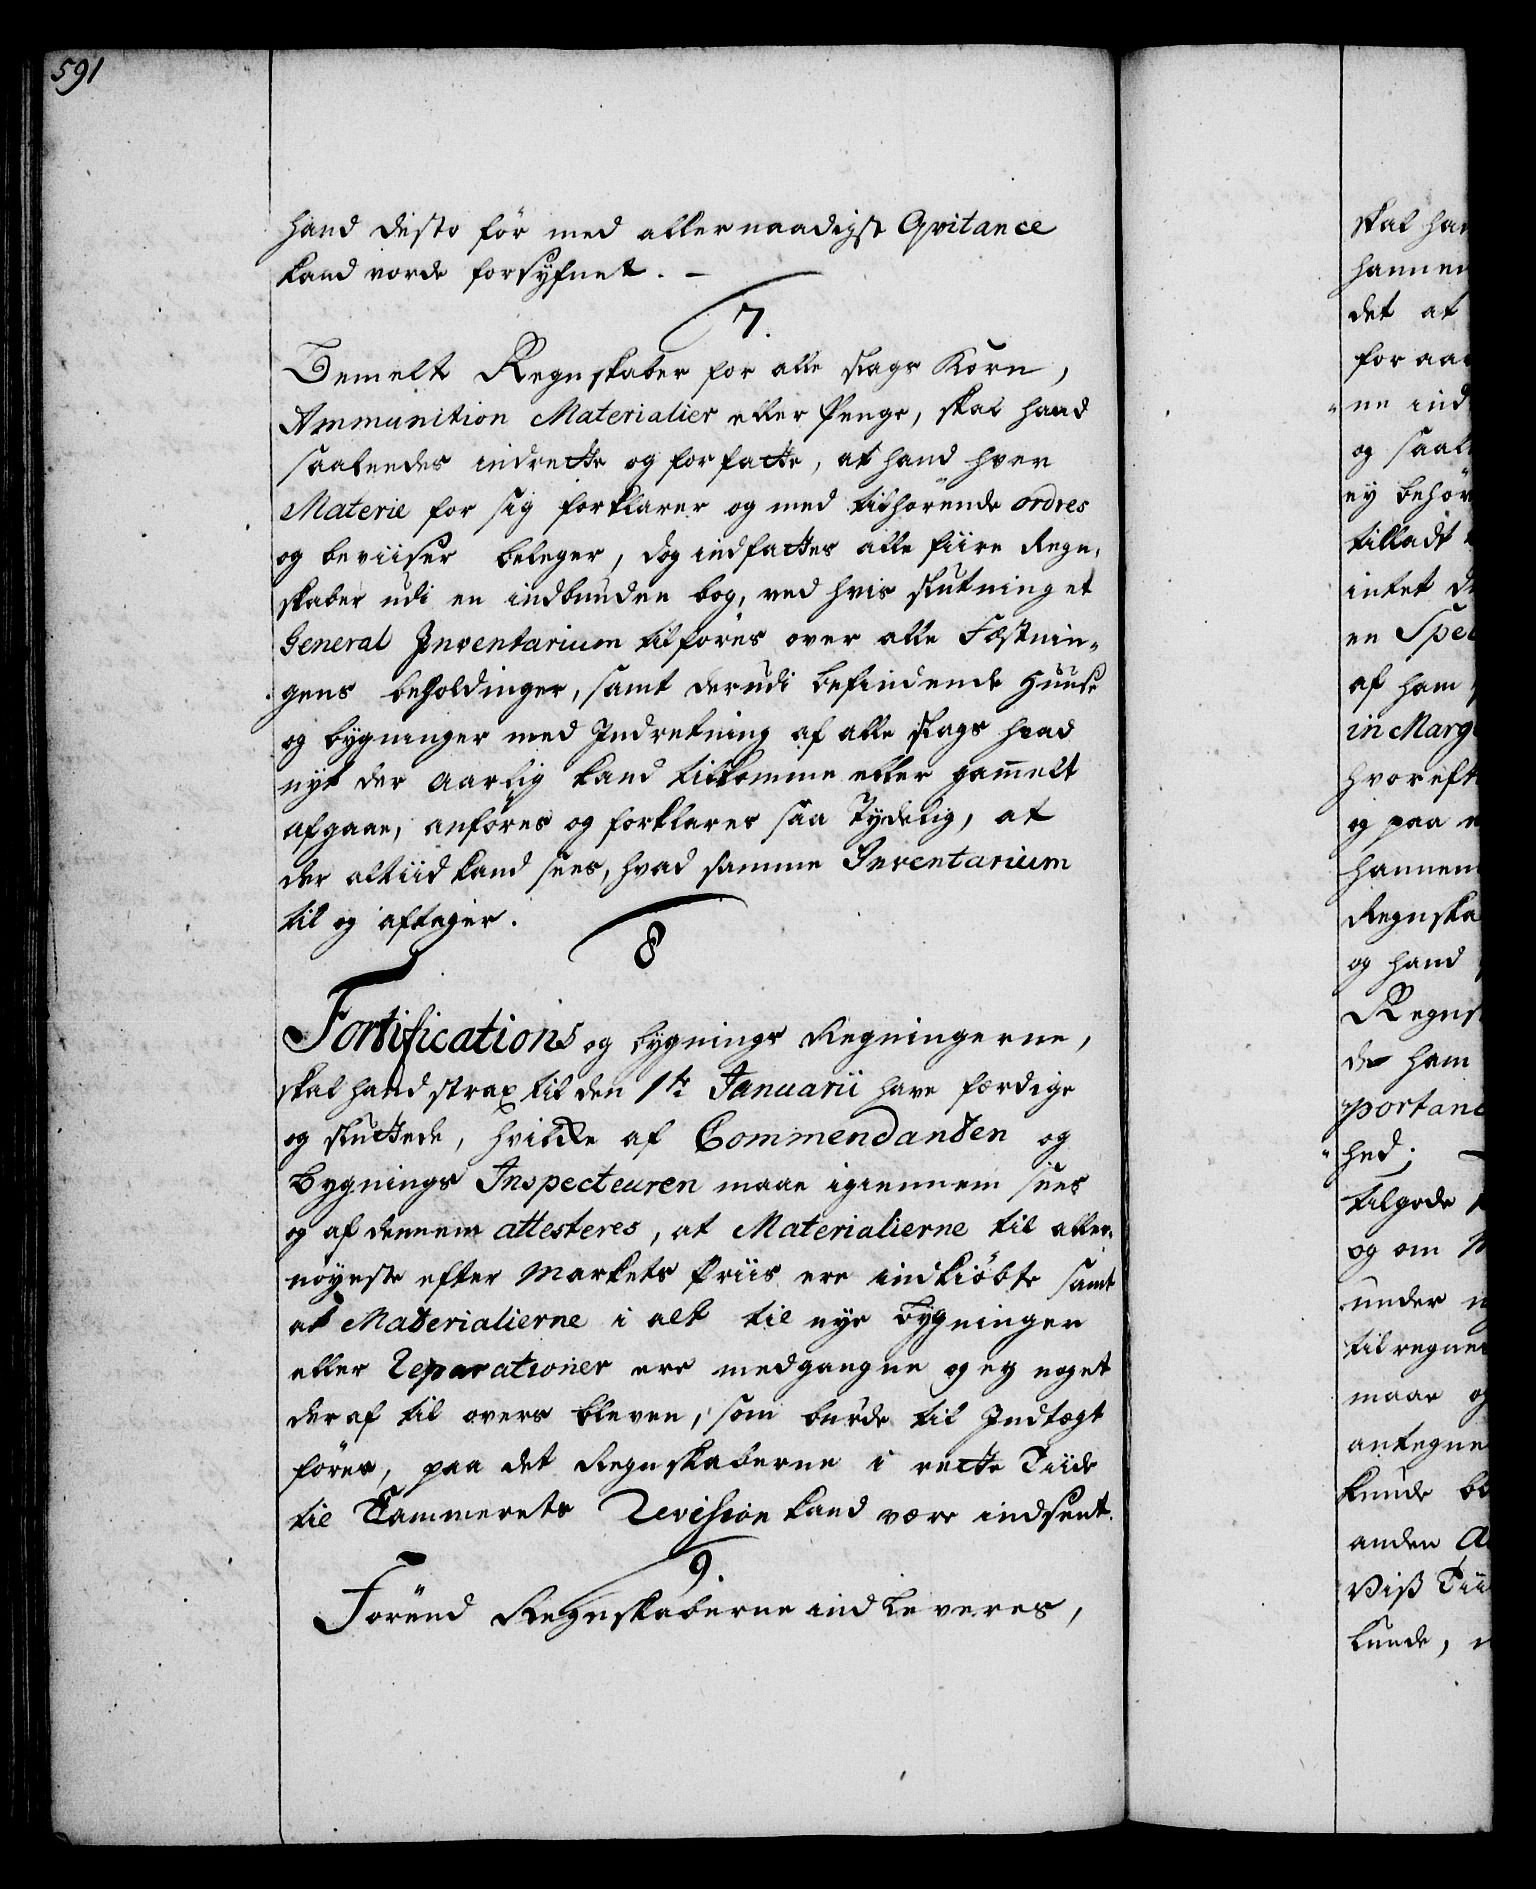 591
hand desto för med allernaadigst Qvitance
kand vorde forsÿfnet. –
7.
Bemelte Regnskaber for alle slags Korn,
Ammunition Materialier eller Penge, skal hand
saaledes indrette og forfatte, at hand hver
Materie for sig forklarer og med tilhörende ordres
og beviiser beleger, dog indfattes alle fiire Regn-
skaber udi en indbunden bog, ved hvis slutning et
General Inventarium tilföres over alle Fæstnin-
gens beholdinger, samt derudi befindende Huuse
og bygninger med Indretning af alle slags hvad
nyt der Aarlig kand tilkomme eller gam̄elt
afgaae, anföres og forklares saa Tydelig, at
der altiid kand sees, hvad samme Inventarium
til og aftager.
8
Fortifications og bygnings Regningerne,
skal hand strax til den 1te Januarii have færdige
og sluttede, hvilke af Commendanten og
Bygnings Inspecteuren maae igiennem sees
og af dennem attesteres, at Materialierne til aller-
nöyeste efter Markets Priis ere indkiöbte samt
at Materialierne i alt til nye bygninger
eller Reparationer ere medgangne og ey noget
deraf til overs bleven, som burde til Indtægt
föres, paa det Regnskaberne i rette Tiide
til Kammerets Revision kand være indsent.
9.
Forend Regnskaberne indleveres,
skal
det at
og
ey
tilladt
intet
en
af ham
in
og paa
og hand
de ham
hed;
tilgode
og om
under
maae
kunde
anden
Viß
kunde,